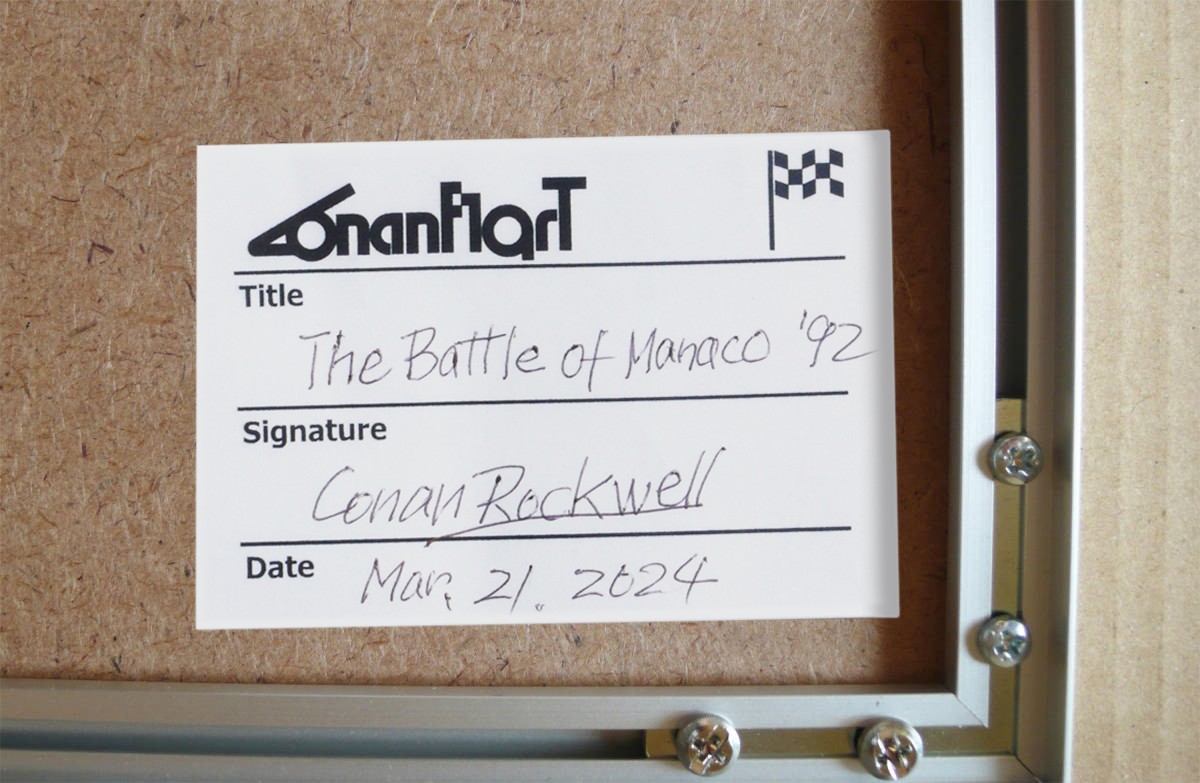 ConanF1arT
Title
The Battle of Manaco '92
Signature
Conan Rockwell
Date
Mar. 21. 2024